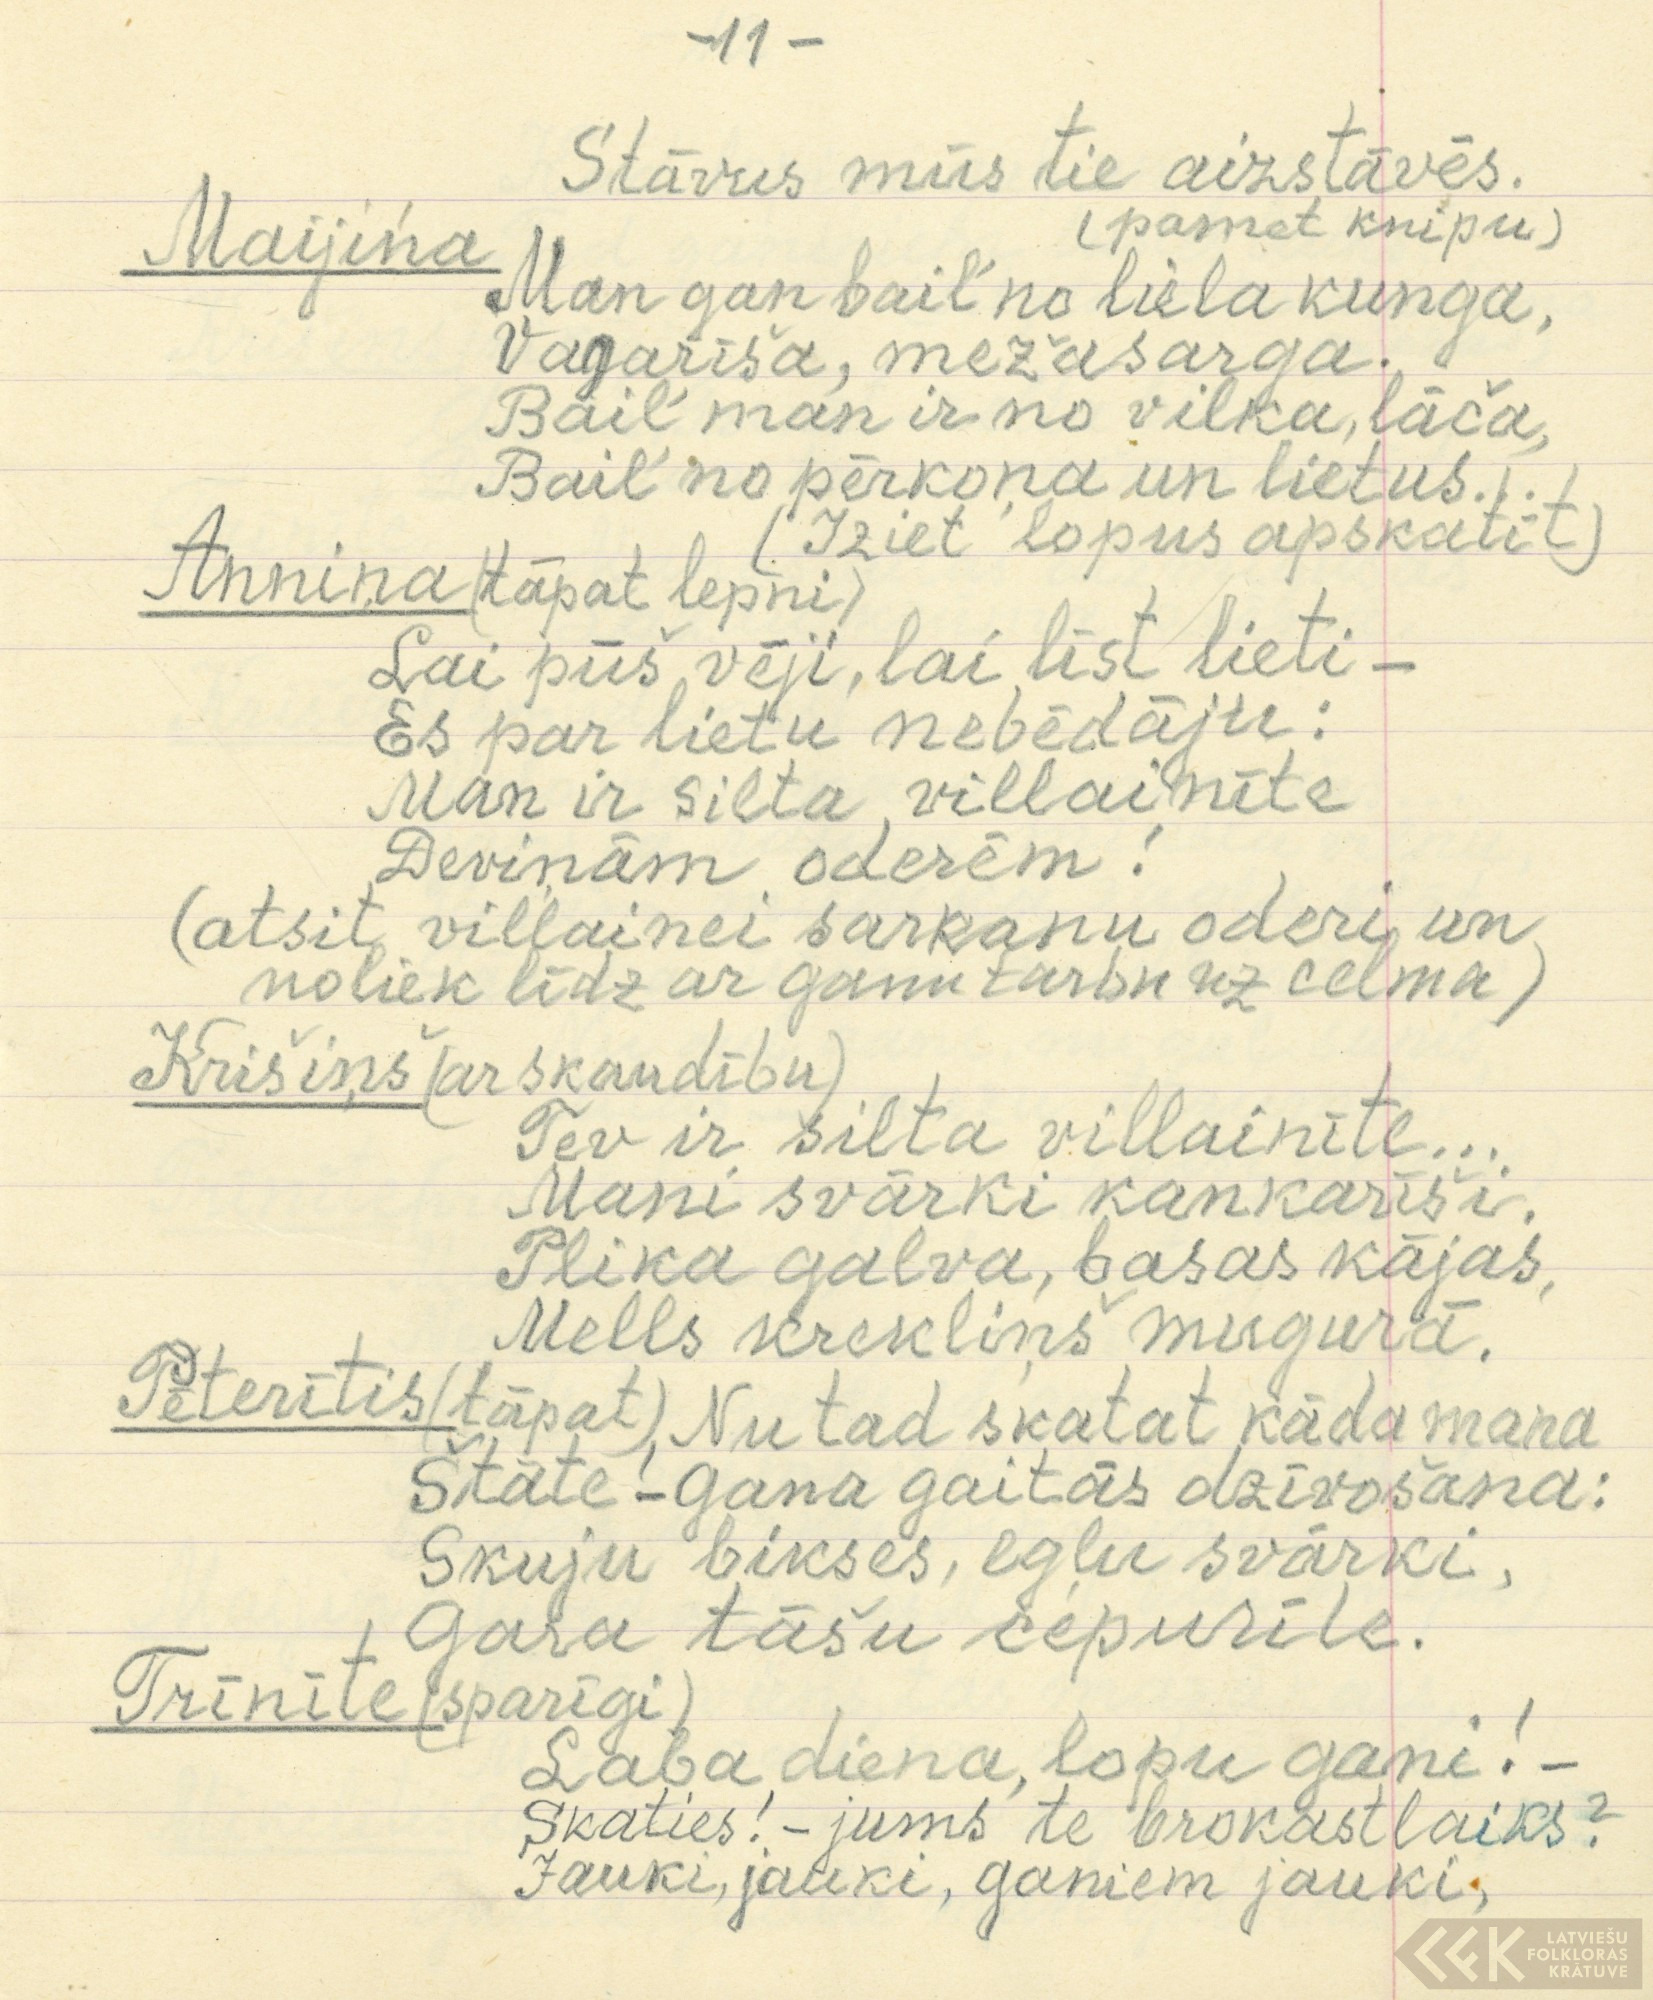 -11-
Stāvus mūs tie aizstāvēs.
(pamet knipu)
Maijiņa
Man gan bail' no liela kunga,
Vagarīša, mežasarga.
Bail' man ir no vilka, lāča,
Bail' no pērkoņa un lietus...
(Iziet lopus apskatīt)
Anniņa (tāpat lepni)
Lai pūš vēji, lai līst lieti -
Es par lietu nebēdāju:
Man ir silta villainīte
Deviņām oderēm!
(atsit villainei sarkanu oderi un
noliek līdz ar ganu tarbu uz celma)
Krišiņš (ar skaudību)
Tev ir silta villainīte...
Mani svārki kankarīši.
Plika galva, basas kājas,
Mells krekliņš mugurā.
Pēterītis (tāpat) Nu tad skatat kāda mana
Štāte! - Gana gaitās dzīvošana:
Skuju bikses, egļu svārki,
Gara tāšu cepurīte.
Trīnīte (sparīgi)
Laba diena, lopu gani! -
Skaties! - jums te brokastlaiks?
Jauki, jauki, ganiem jauki,
LATVIEŠU
FOLKLORAS
KRĀTUVE